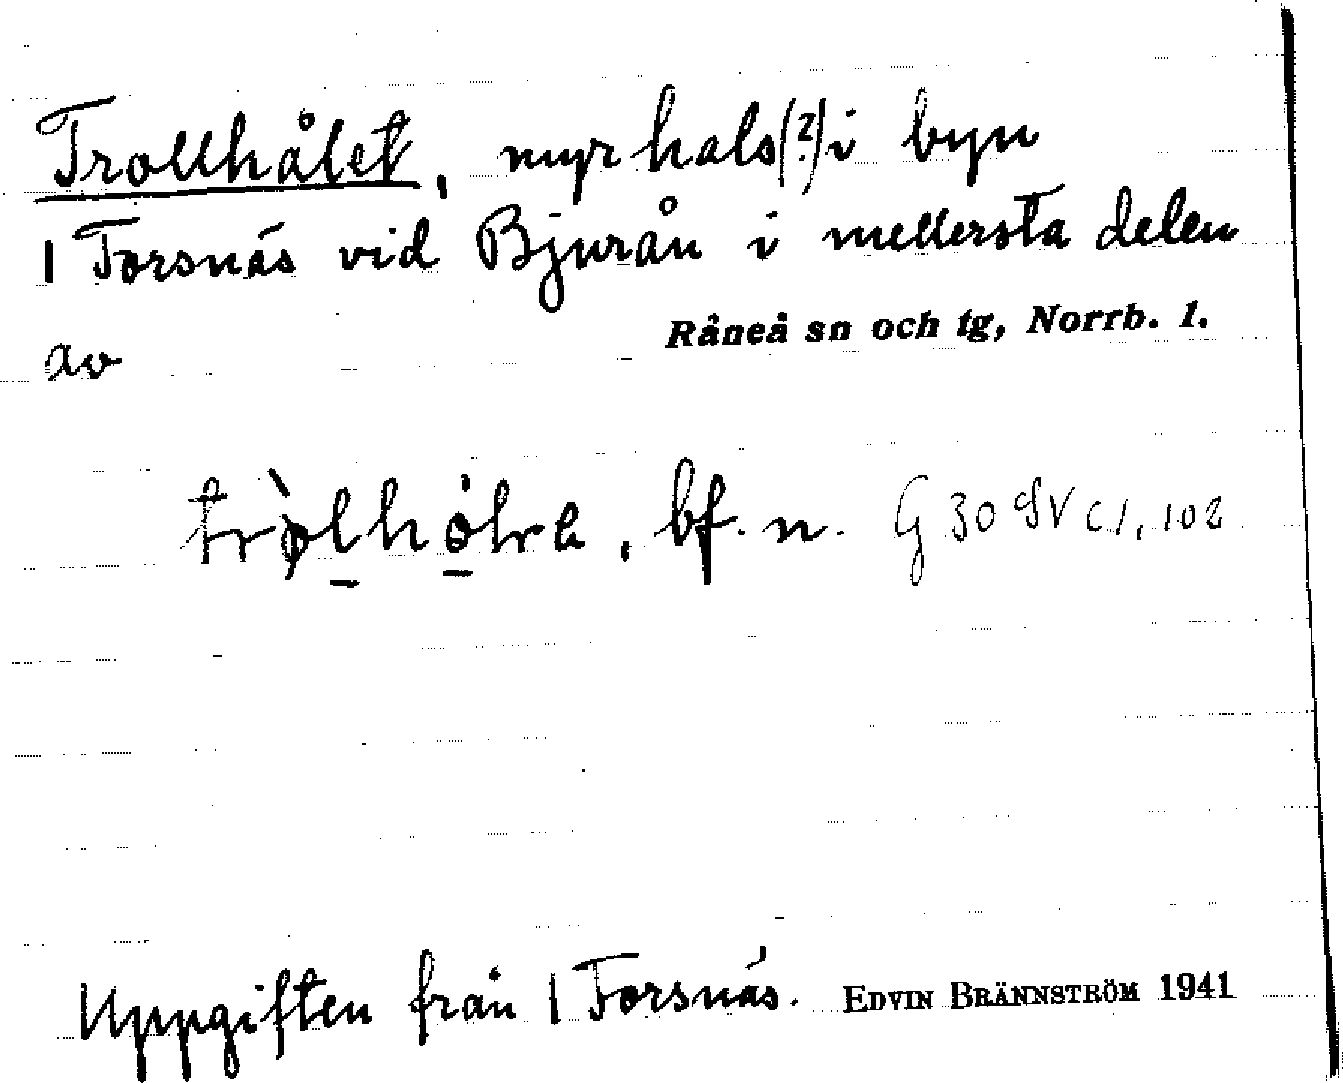 Trollhålet, myrhals(?) i byn
1 Torsnäs vid Bjurån i mellersta delen
av Råneå sn och tg, Norrb. l.
bf. n. G 30 SV c1, 102
Uppgiften från 1 Torsnäs. EDVIN BRÄNNSTRÖM 1941